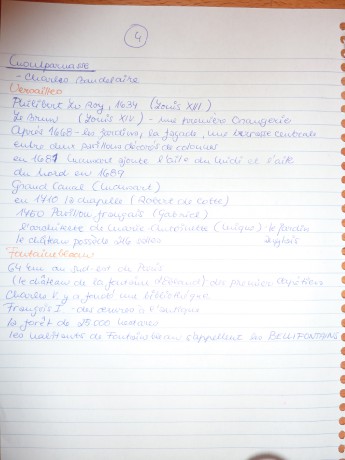 4
Montparnasse
- Charles Baudelaire
Versailles
Philibert Le Roy, 1634 (Louis XIII)
Le Brun (Louis XIV) - une première Orangerie
Après 1668 - les jardins, la façade, une terrasse centrale
entre deux pavillons décorés de colonnes
en 1681 Mansart ajoute l'aile du Midi et l'aile
du Nord en 1689
Grand Canal (Mansart)
en 1710 la chapelle (Robert de Cotte)
1760 Pavillon français (Gabriel)
l'architecte de Marie Antoinette (Mique) le jardin
anglais
le château possède
Fontainebleau
64 km au sud-est de Paris
(le château de la fontaine) des premiers Capétiens
Charles V y a fondé une bibliothèque
François I - des œuvres à l'antique
la forêt de 25.000 hectares
les habitants de Fontainebleau s'appellent les BELLIFONTAINS